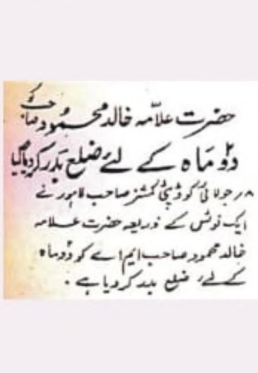 حضرت علامہ خالد محمود صاحب کو
دو ماہ کے لئے ضلع بدر کر دیا گیا
۸ جولائی کو ڈپٹی کمشنر صاحب لاہور نے
ایک نوٹس کے ذریعہ حضرت علامہ
خالد محمود صاحب ایم اے کو دو ماہ
کے لئے ضلع بدر کر دیا ہے ۔